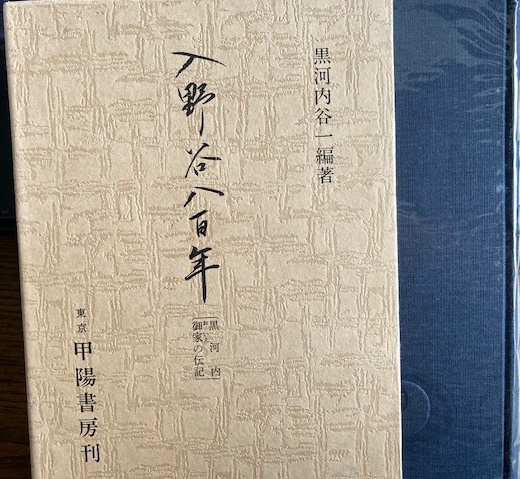 黒河内谷一編著
入野谷八百年
黒河内
御家の伝記
東京 甲陽書房刊